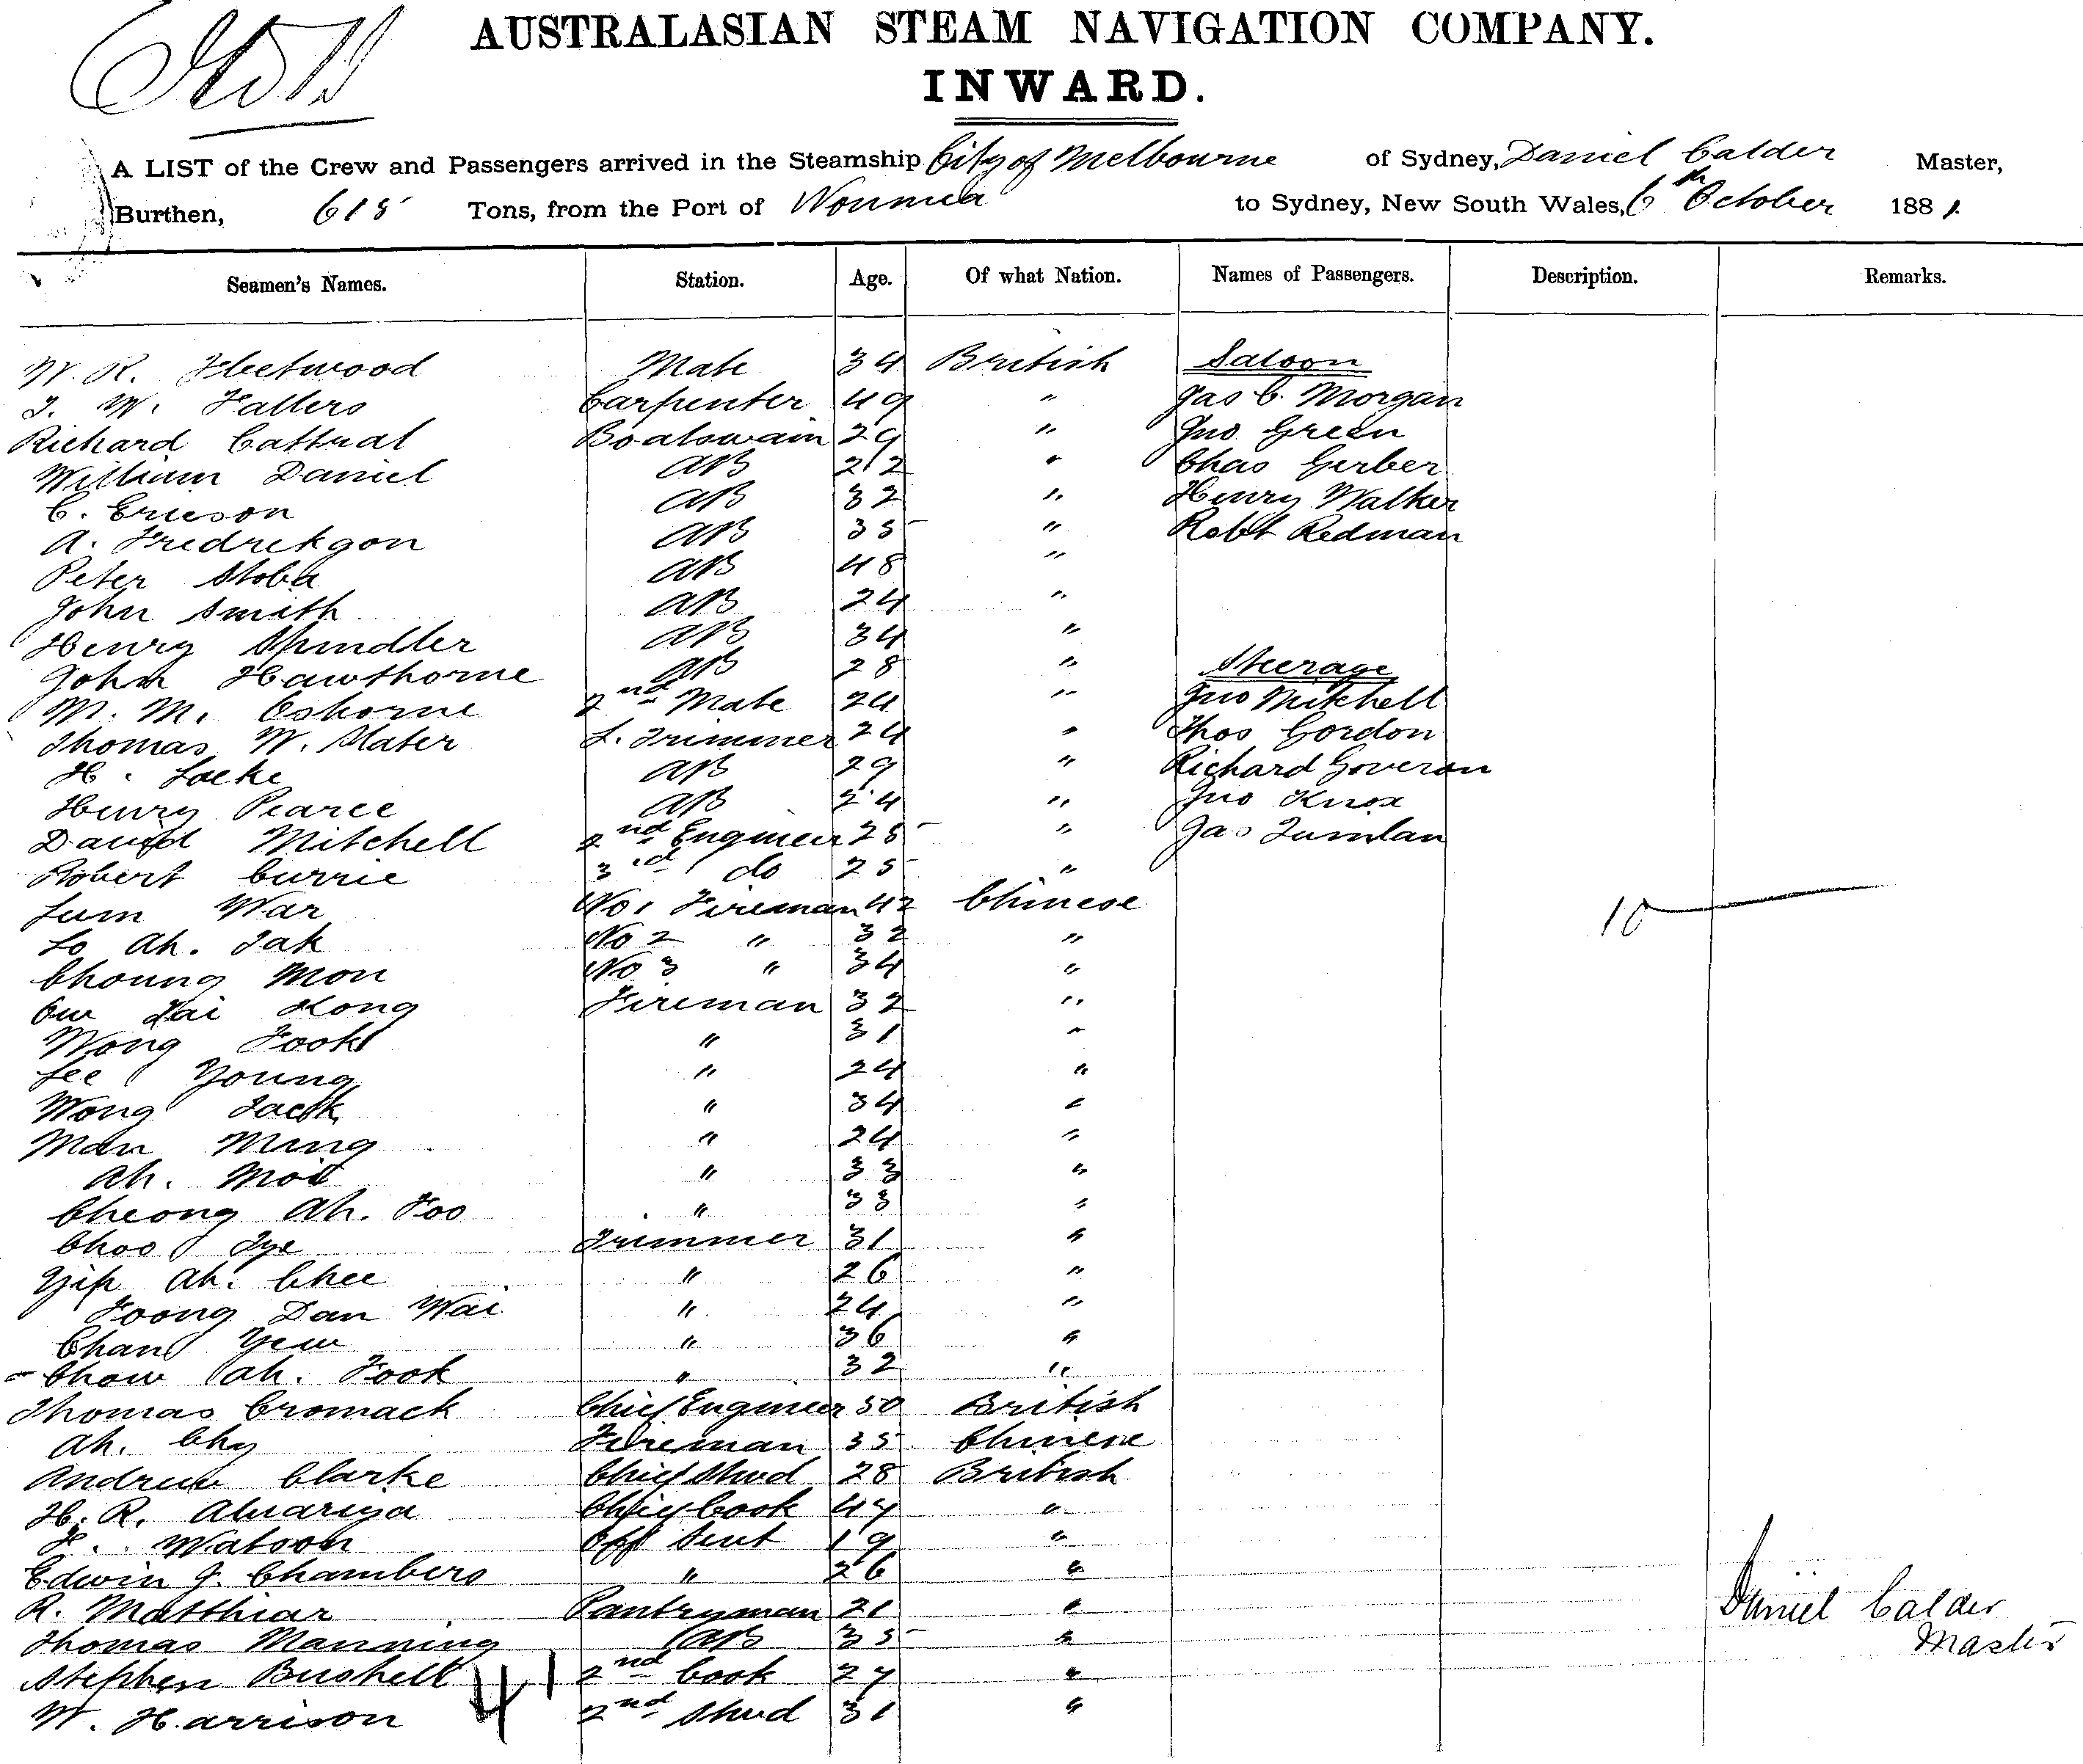 AUSTRALASIAN STEAM NAVIGATION COMPANY.
INWARD.
A LIST of the Crew and Passengers arrived in the Steamship City of Melbourne of Sydney, Daniel Calder Master,
Burthen, 615 Tons, from the Port of Noumea to Sydney, New South Wales, 6th October 1881.
Seamen's Names. Station. Age. Of what Nation. Names of Passengers. Description. Remarks.
W. R. Fleetwood Mate 34 British Saloon
J. W. Fallers Carpenter 49 " Jas C. Morgan
Richard Boatswain 29 " Jno Green
William Daniel AB 22 " Chas Gerber
C. Ericson AB 32 " Henry Walker
A. Fredrekson AB 35 " Robt Redman
Peter AB 48 "
John Smith AB 24 "
Henry Spindler AB 34 "
John Hawthorne AB 28 " Steerage
M. M. Osborne 2nd Mate 24 " Jno Mitchell
Thomas W. Slater L. Trimmer 24 " Thos Gordon
H. Locke AB 29 " Richard Goveran
Henry Pearce AB 24 " Jno Knox
David Mitchell 2nd Engineer 28 " Jas
Robert Currie 3rd do 25 "
Lum War No 1 Fireman 42 Chinese
10
Lo Ah. Tak No 2 " 32 "
Choung Mon No 3 " 34 "
Tai Kong Fireman 32 "
Wong Fook " 31 "
Lee Young " 24 "
Wong Jack " 34 "
Man Ming " 24 "
Ah. Moi " 33 "
Cheong Ah. Foo " 33 "
Choo Tye Trimmer 31 "
Yip Ah. Chee " 26 "
Foong Dan Wai " 24 "
Chan Yew " 36 "
Chow Ah. Fook " 32 "
Thomas Cromack Chief Engineer 50 British
Ah. Chy Fireman 35 Chinese
Andrew Clarke Chief Stwd 28 British
H. R. Chief Cook 47 "
F. Watson Off Servt 19 "
Edwin J. Chambers " 26 "
R. Matthiar Pantryman 21 " Daniel Calder
Thomas Manning AB 35 " Master
Stephen Bushell 2nd Cook 27 "
41
W. Harrison 2nd Stwd 31 "